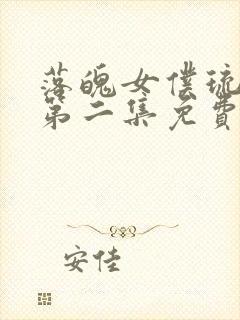 落魄女僕琉
第二集免費
安佳